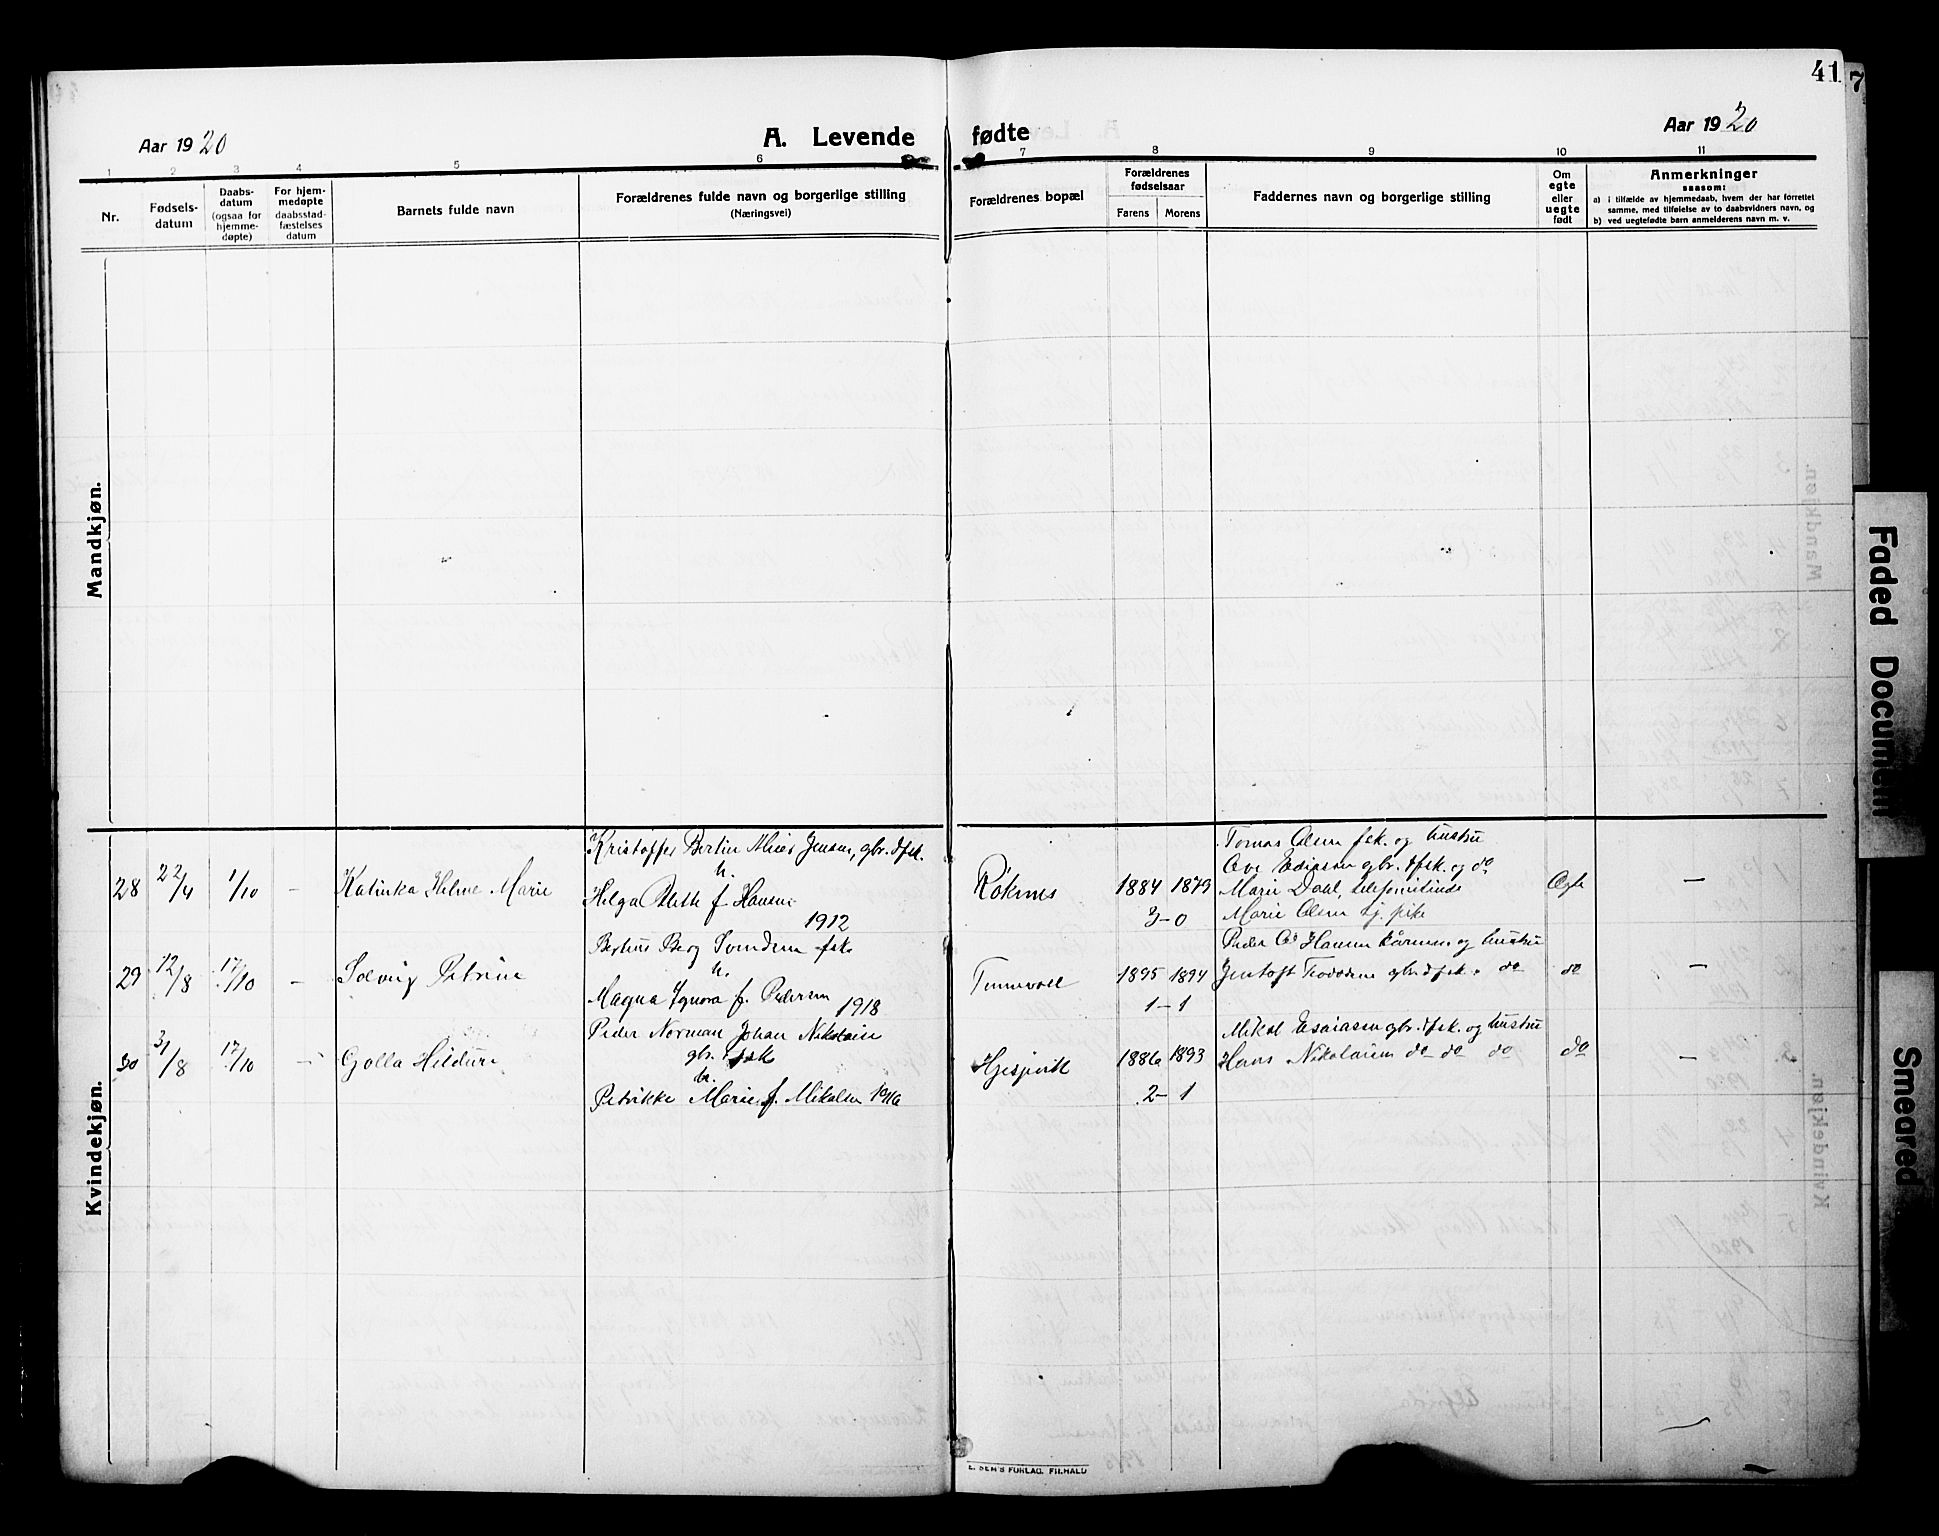 41
7
Aar 1920
A. Levende fødte
Aar 1920
1 2 3 4 5 6 7 8 9 10 11
Nr.
Fødsels-
datum
Daabs-
datum
(ogsaa for
hjemme-
døpte)
For hjem-
medøpte
daabsstad-
fæstelses
datum
Barnets fulde navn
Forældrenes fulde navn og borgerlige stilling
(Næringsvei)
Forældrenes bopæl
Forældrenes
fødselsaar
Farens Morens
Faddernes navn og borgerlige stilling
Om
egte
eller
uegte
født
Anmerkninger
saasom:
a) i tilfælde av hjemmedaab, hvem der har forrettet
samme, med tilføielse av to daabsvidners navn, og
b) ved uegtefødte barn anmelderens navn m. v.
Mandkjøn.
Kvindekjøn.
28 22/4 1/10 – Katinka Helene Marie
Kristoffer Bertin Jensen, gbr. & fsk.
h.
Helga Mette f. Hansen
1912
Røknes
1884 1879
3–0
Tomas Olsen fsk. og hustru
Ove Esaiassen gbr. & fsk. og do
Marie Dahl, telefonistinde
Marie Olsen tj. pike
Ægte
–
29 12/8 17/10 – Solveig Petrine
Bertius Berg fsk.
h.
Magna f. Pedersen
1918
1895 1894
1–1
Peder Hansen og hustru
gbr. & fsk. do
do
–
30 31/8 17/10 – Golla Hildur
Peder Norman Johan
gbr. & fsk
h.
Petrikke Marie f. Mikalsen 1916
1886 1893
2–1
Mikal Esaiassen gbr. & fsk. og hustru
Hans Nikolaisen do do do
do
–
E. SEM'S FORLAG, FR.HALD
Faded Document
Smeared